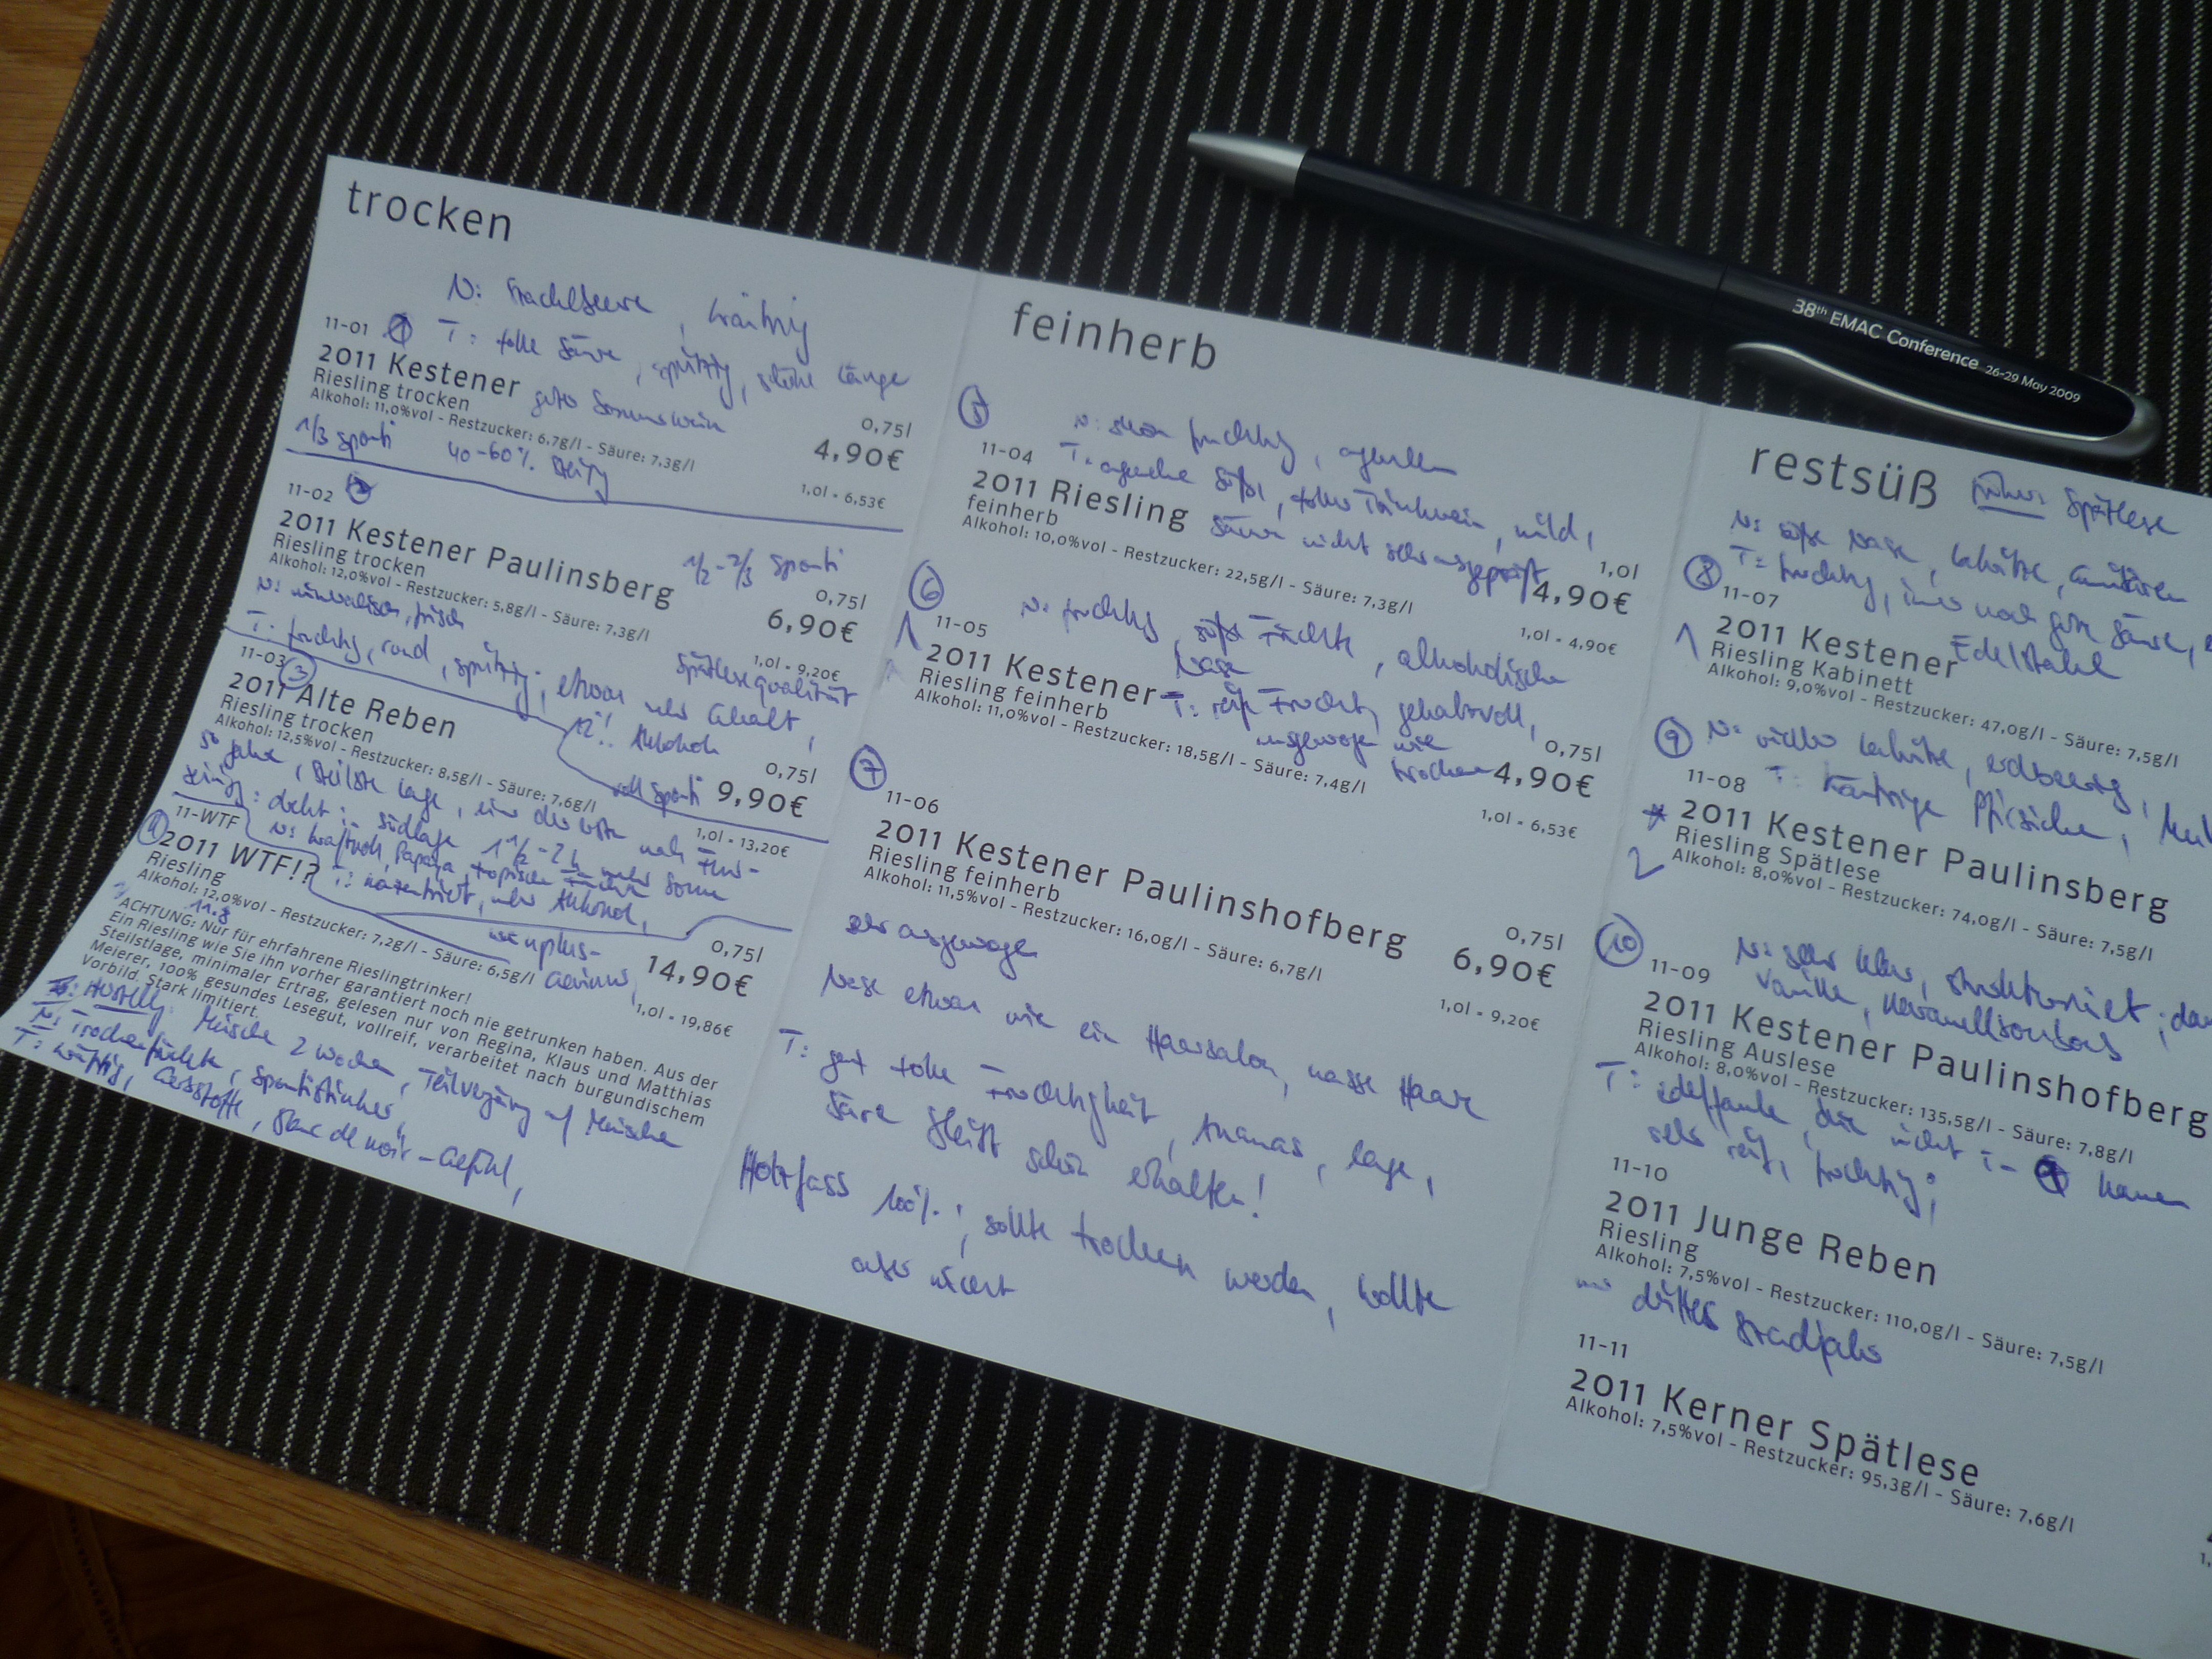 trocken
N: Stachelbeere, kräftig
11-01 1 T: tolle Säure, spritzig, schöne Länge
2011 Kestener guter Sommerwein
Riesling trocken
Alkohol: 11,0%vol - Restzucker: 6,7g/l - Säure: 7,3g/l
0,75l
4,90€
1,0l = 6,53€
1/3 sponti 40-60%
11-02 2
2011 Kestener Paulinsberg
Riesling trocken
Alkohol: 12,0%vol - Restzucker: 5,8g/l - Säure: 7,3g/l
1/2 - 2/3 sponti
0,75l
6,90€
1,0l = 9,20€
N: mineralisch, frisch
Spätlesequalität
T: fruchtig, rund, spritzig, etwas mehr Gehalt,
12%! Alkohol
11-03 3
2011 Alte Reben
Riesling trocken
Alkohol: 12,5%vol - Restzucker: 8,5g/l - Säure: 7,6g/l
0,75l
voll sponti 9,90€
1,0l = 13,20€
50 Jahre, steilste Lage, eine der
Südlage 1 1/2 - 2 h mehr Sonne
N: kraftvoll, Papaya, tropische Früchte
T: konzentriert, mehr Alkohol,
11-WTF
4
2011 WTF!?
Riesling
Alkohol: 12,0%vol - Restzucker: 7,2g/l - Säure: 6,5g/l
11.8
0,75l
14,90€
1,0l = 19,86€
ACHTUNG: Nur für ehrfahrene Rieslingtrinker!
Ein Riesling wie Sie ihn vorher garantiert noch nie getrunken haben. Aus der
Steilstlage, minimaler Ertrag, gelesen nur von Regina, Klaus und Matthias
Meierer, 100% gesundes Lesegut, vollreif, verarbeitet nach burgundischem
Vorbild. Stark limitiert.
Maische 2 Wochen, Teilvergärung auf Maische
N: Trockenfrüchte, Spontistinker,
T: kräftig, Gerbstoffe, Blanc de noir - Gefühl,
feinherb
5
N: schön fruchtig,
11-04 T: Süße, toller Trinkwein, mild,
2011 Riesling Säure nicht sehr ausgeprägt
feinherb
Alkohol: 10,0%vol - Restzucker: 22,5g/l - Säure: 7,3g/l
1,0l
4,90€
1,0l = 4,90€
6
N: fruchtig, süße Früchte, alkoholische
Nase
1
11-05
2011 Kestener T: reife Frucht, gehaltvoll,
Riesling feinherb ausgewogen wie
Alkohol: 11,0%vol - Restzucker: 18,5g/l - Säure: 7,4g/l
trocken
0,75l
4,90€
1,0l = 6,53€
7
11-06
2011 Kestener Paulinshofberg
Riesling feinherb
Alkohol: 11,5%vol - Restzucker: 16,0g/l - Säure: 6,7g/l
0,75l
6,90€
1,0l = 9,20€
sehr ausgewogen
Nase etwas wie ein Haarsalon, nasse Haare
T: ganz tolle Fruchtigkeit, Ananas, lange,
Säure bleibt schön erhalten!
Holzfass 100%; sollte trocken werden, wollte
aber nicht
restsüß früher Spätlese
N: süße Nase, Lakritze,
8 T: fruchtig, immer noch gute Säure,
11-07
1
2011 Kestener Edelstahl
Riesling Kabinett
Alkohol: 9,0%vol - Restzucker: 47,0g/l - Säure: 7,5g/l
9 N: Lakritze, erdbeerig,
11-08 T: Pfirsiche,
* 2011 Kestener Paulinsberg
2
Riesling Spätlese
Alkohol: 8,0%vol - Restzucker: 74,0g/l - Säure: 7,5g/l
10
N: sehr klar, strukturiert;
11-09 Vanille, Karamellbonbons
2011 Kestener Paulinshofberg
Riesling Auslese
Alkohol: 8,0%vol - Restzucker: 135,5g/l - Säure: 7,8g/l
T: edelfaule, die nicht
sehr reif, fruchtig;
11-10
2011 Junge Reben
Riesling
Alkohol: 7,5%vol - Restzucker: 110,0g/l - Säure: 7,5g/l
drittes
11-11
2011 Kerner Spätlese
Alkohol: 7,5%vol - Restzucker: 95,3g/l - Säure: 7,6g/l
38th EMAC Conference 26-29 May 2009